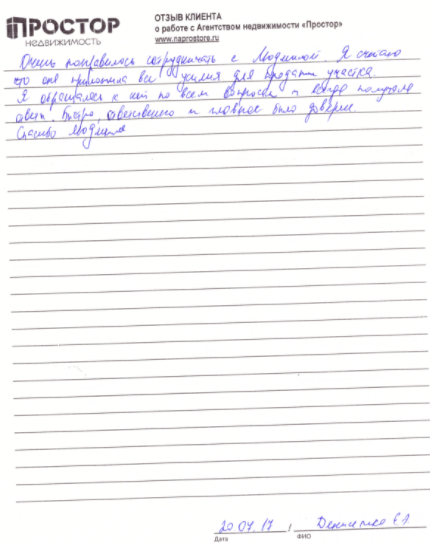 ПРОСТОР
НЕДВИЖИМОСТЬ
ОТЗЫВ КЛИЕНТА
о работе с Агентством недвижимости «Простор»
www.naprostore.ru
Очень понравилось сотрудничать с Людмилой. Я считаю
что она приложила все усилия для продажи участка.
Я обращалась к ней по всем вопросам и всегда получала
ответ. Быстро, ответственно и главное было доверие.
Спасибо Людмила
20.07.17 /
Дата ФИО